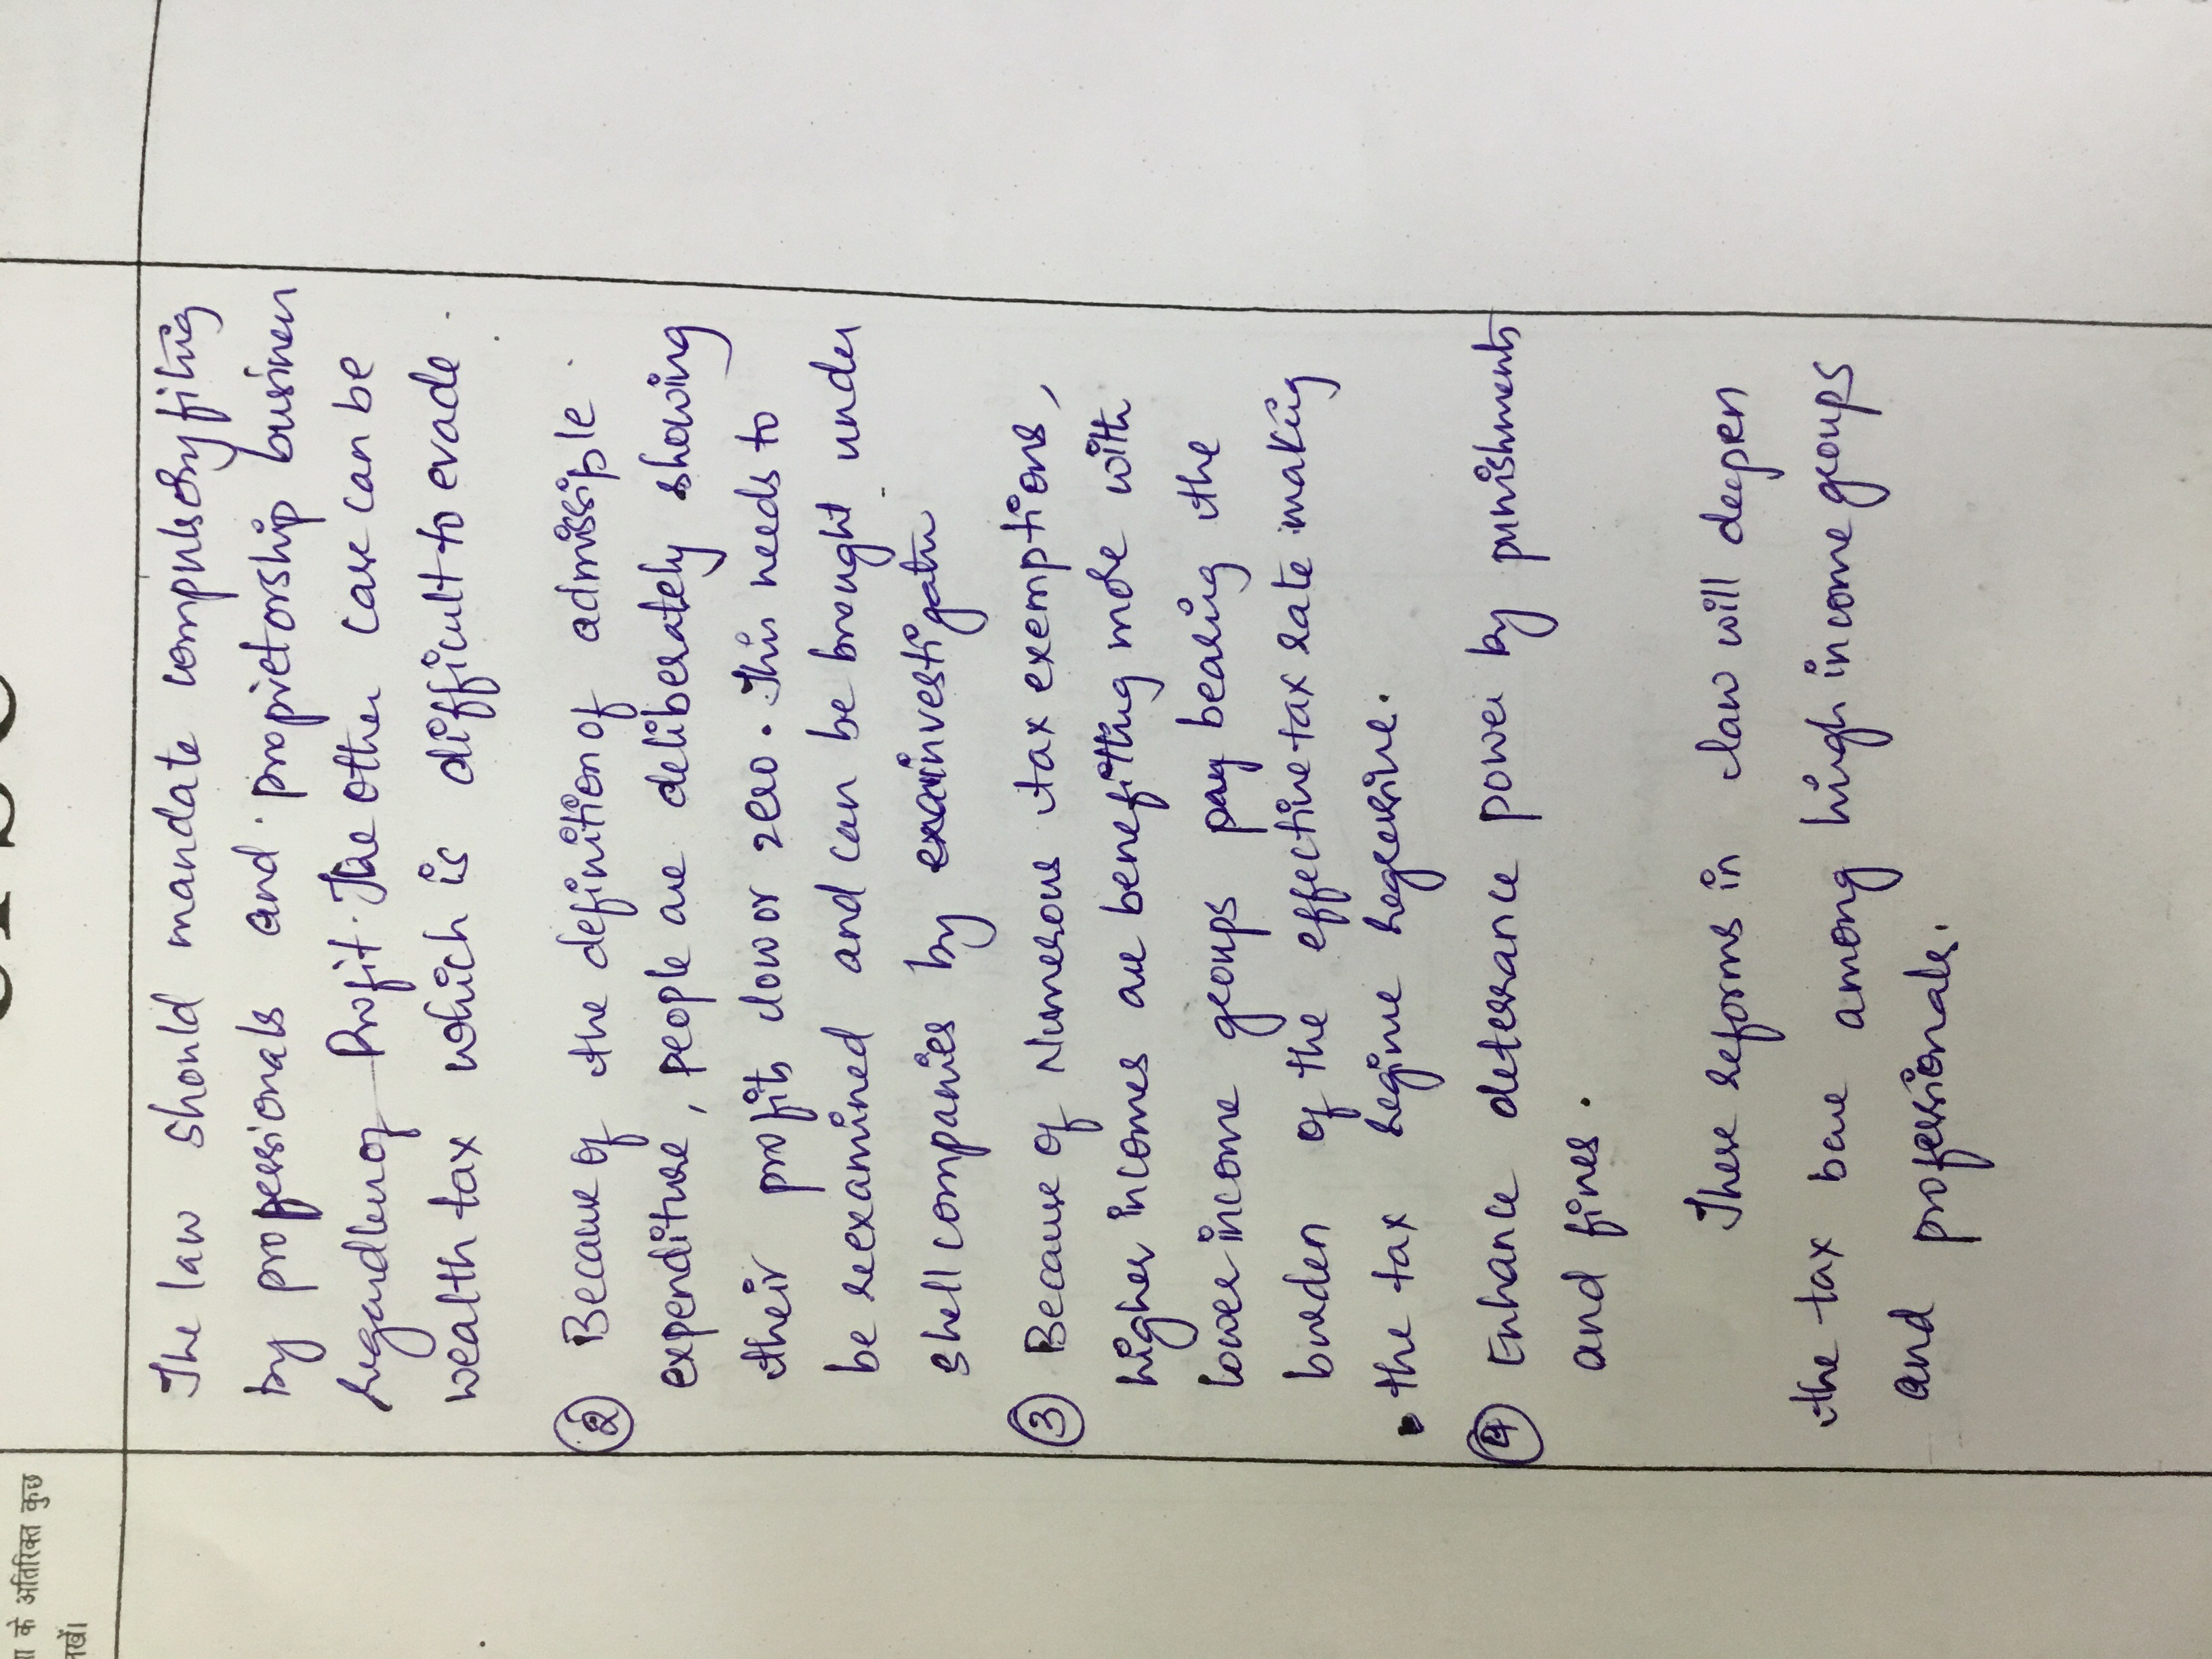 के अतिरिक्त कुछ
लिखें।
The law should mandate compulsory filing
by professionals and proprietorship business
regardless of Profit. The other case can be
wealth tax which is difficult to evade.
② Because of the definition of admissible
expenditure, people are deliberately showing
their profits low or zero. This needs to
be reexamined and can be brought under
shell companies by investigatn
③ Because of Numerous tax exemptions,
higher incomes are benefitting more with
lower income groups pay bearing the
burden of the effective tax rate making
the tax regime regressive.
④ Enhance deterrance power by punishments
and fines.
These reforms in law will deepen
the tax base among high income groups
and professionals.